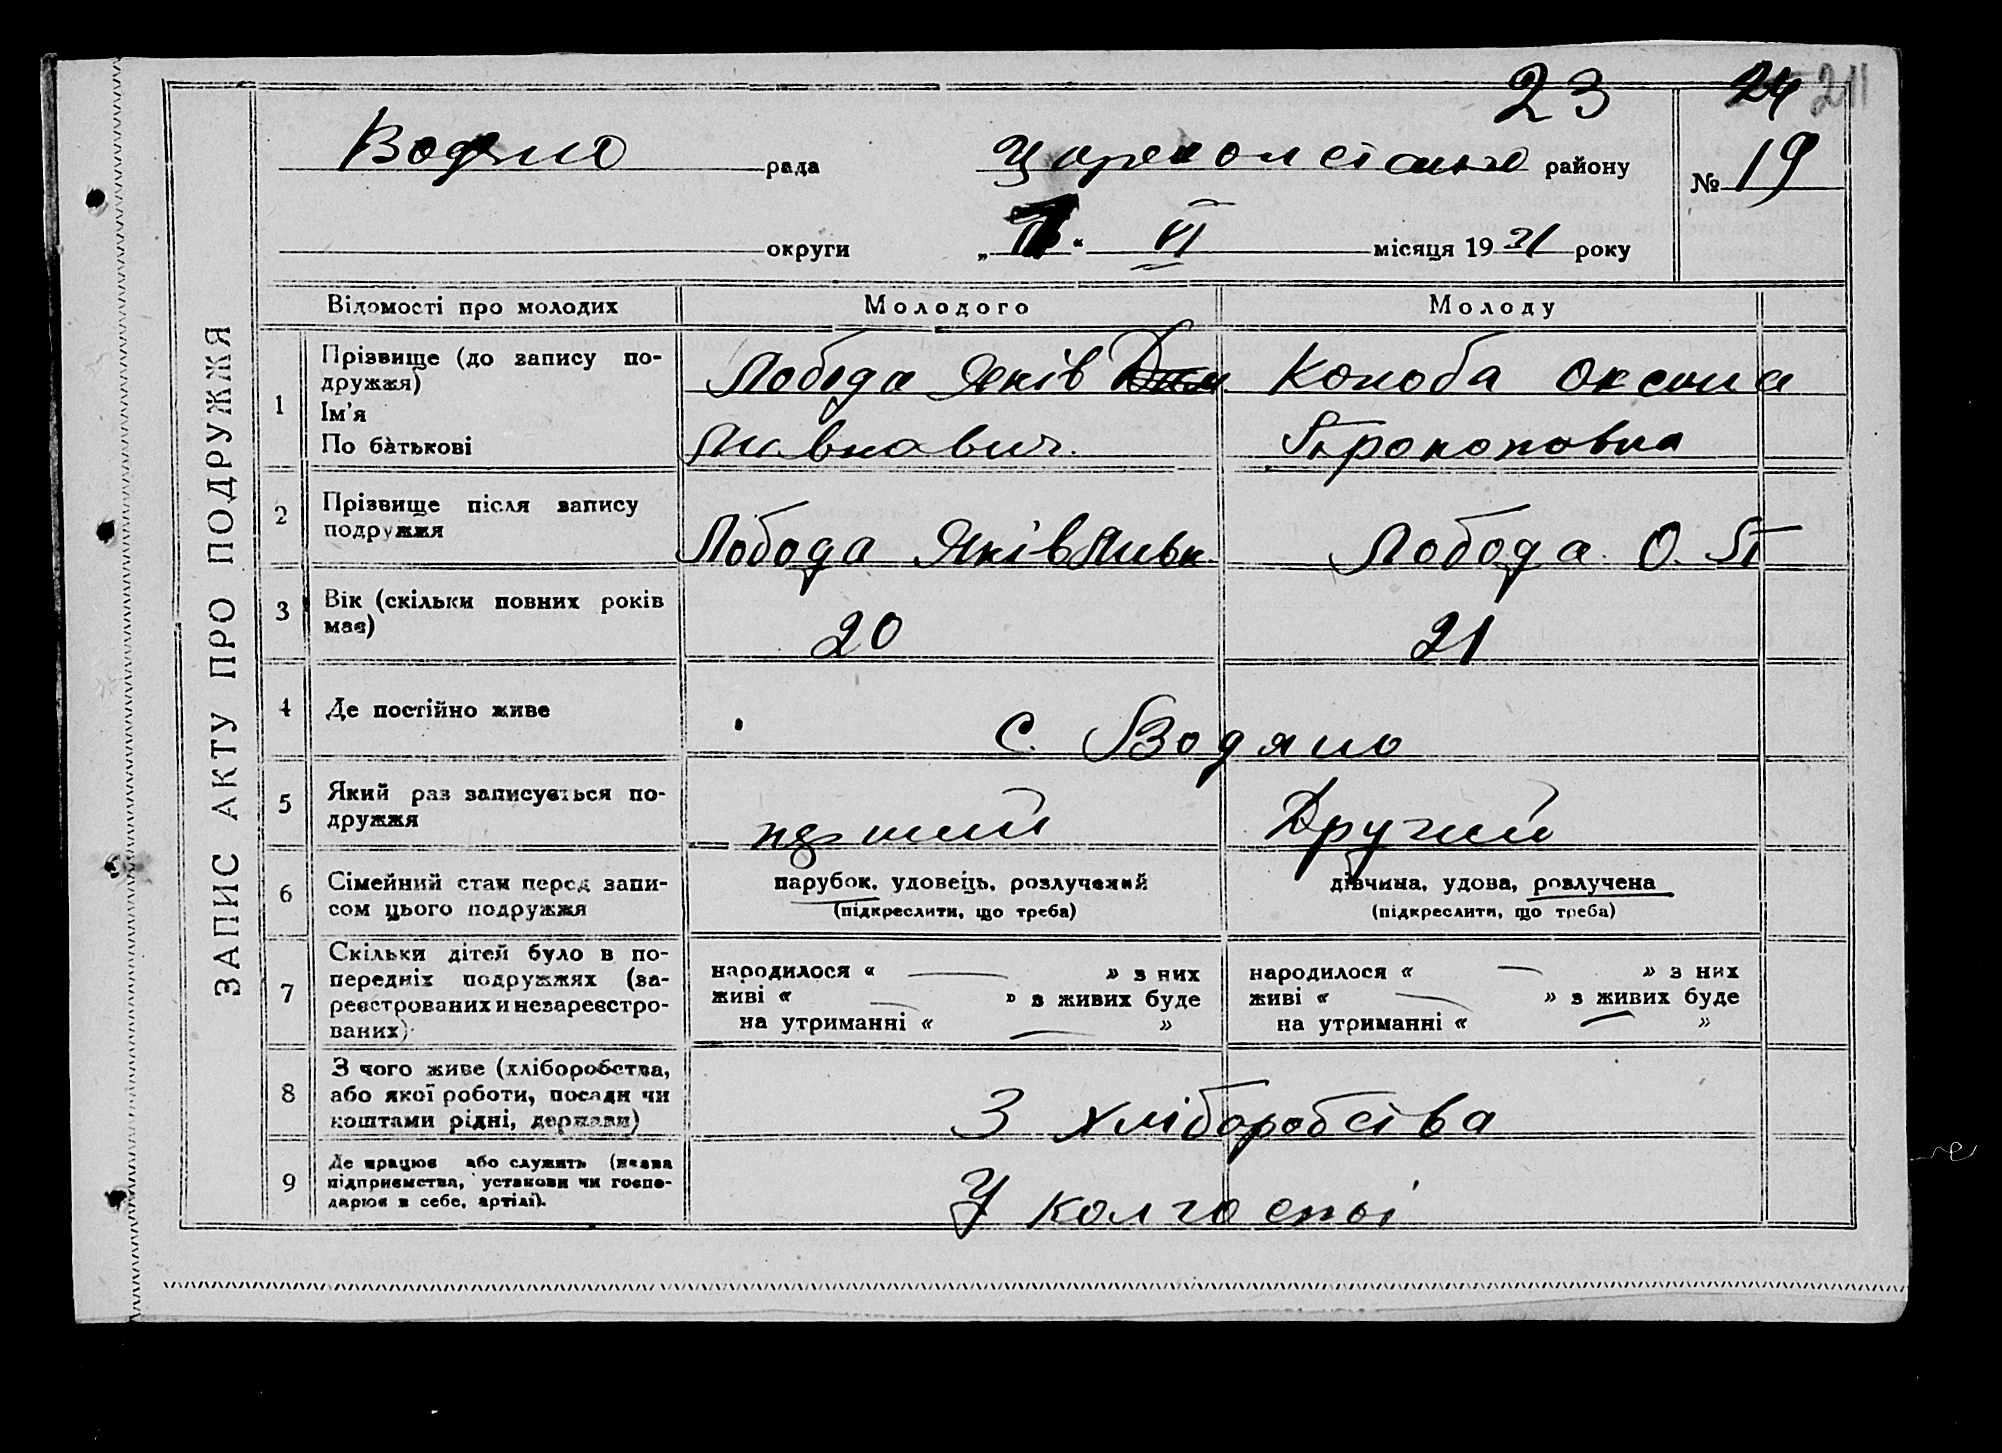 23 24 211
Водяно рада Цареконстан району № 19
округи „ “ VI місяця 1931 року
ЗАПИС АКТУ ПРО ПОДРУЖЖЯ
Відомості про молодих Молодого Молоду
1 Прізвище (до запису по-
дружжя)
Ім'я
По батькові
Лобода Яків
Павлович.
Коноба Оксана
Прокоповна
2 Прізвище після запису
подружжя
Лобода Яків
Лобода О. П
3 Вік (скільки повних років
має)
20 21
4 Де постійно живе
С. Водяно
5 Який раз записується по-
дружжя
перший Другий
6 Сімейний стан перед запи-
сом цього подружжя
парубок, удовець, розлучений
(підкреслити, що треба)
дівчина, удова, розлучена
(підкреслити, що треба)
7 Скільки дітей було в по-
передніх подружжях (за-
реєстрованих и незареєстро-
ваних)
народилося « — » з них
живі « — » з живих буде
на утриманні « — »
народилося « — » з них
живі « — » з живих буде
на утриманні « — »
8 З чого живе (хліборобства,
або якої роботи, посади чи
коштами рідні, держави)
З хліборобства
9 Де працює або служить (назва
підприємства, установи чи госпо-
дарює в себе, артілі).
У колгоспі